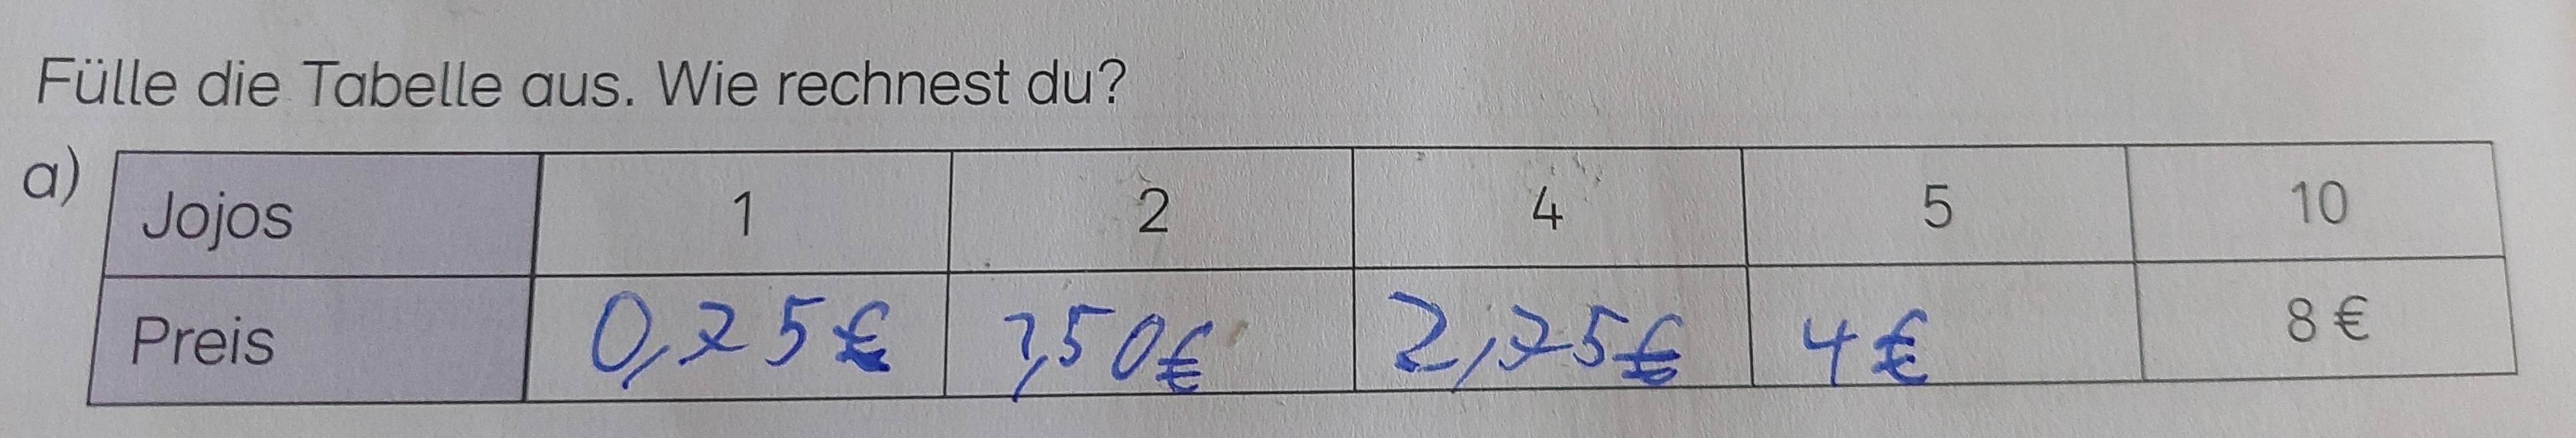 Fülle die Tabelle aus. Wie rechnest du?
a)
Jojos 1 2 4 5 10
Preis 0,75€ 1,50€ 2,75€ 4€ 8€